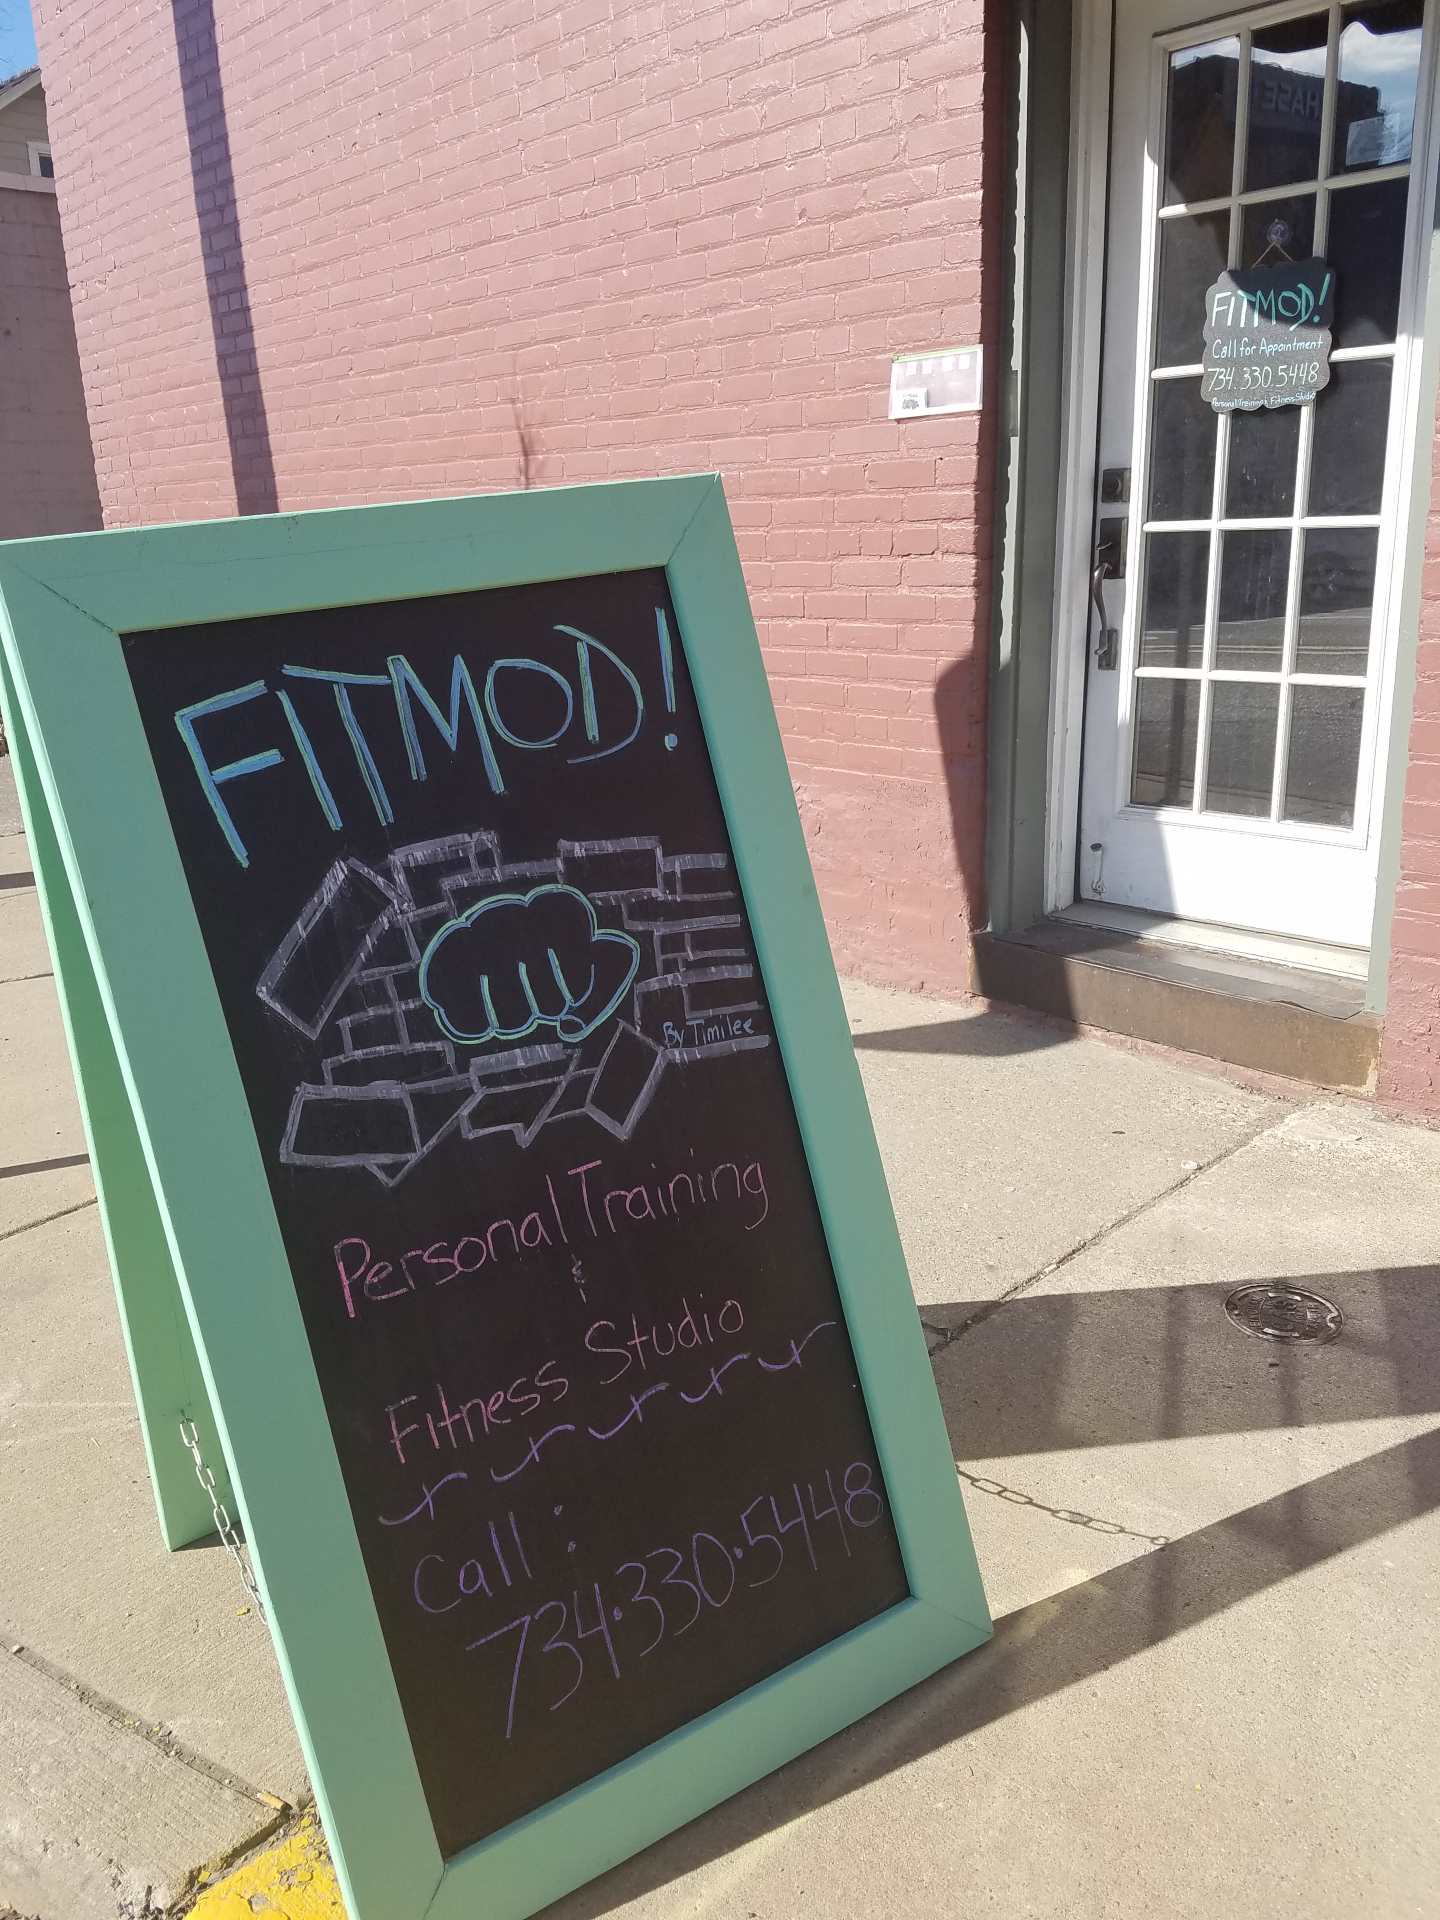 FITMOD!
By Timilee
Personal Training
&
Fitness Studio
Call:
734.330.5448
FITMOD!
Call for Appointment
734.330.5448
Personal Training & Fitness Studio